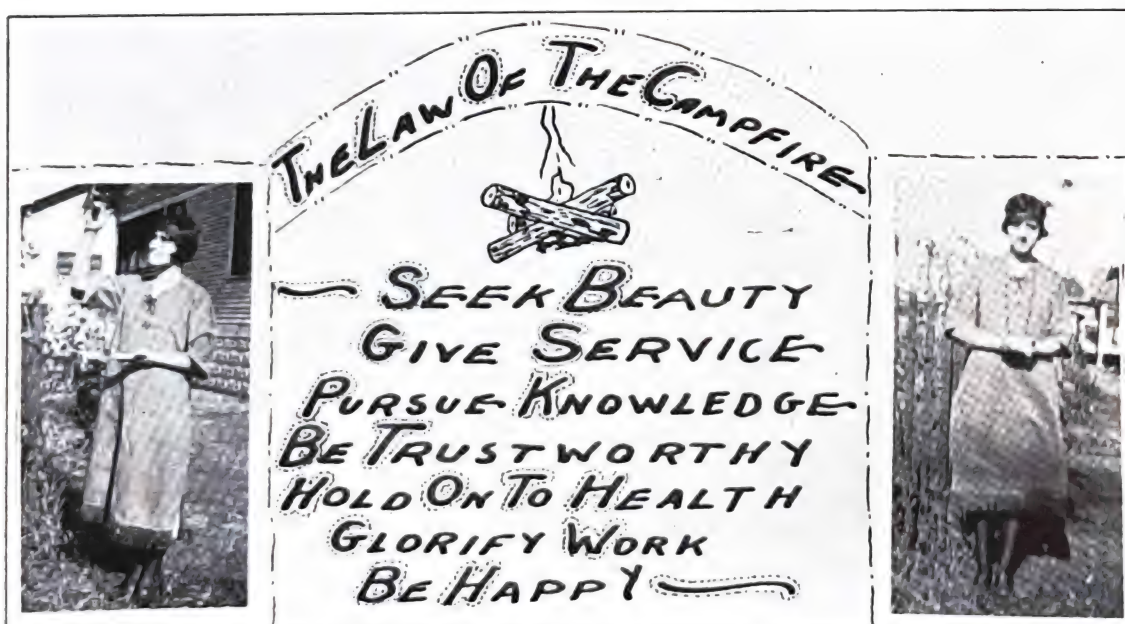 THE LAW OF THE CAMPFIRE
SEEK BEAUTY
GIVE SERVICE
PURSUE KNOWLEDGE
BE TRUSTWORTHY
HOLD ON TO HEALTH
GLORIFY WORK
BE HAPPY